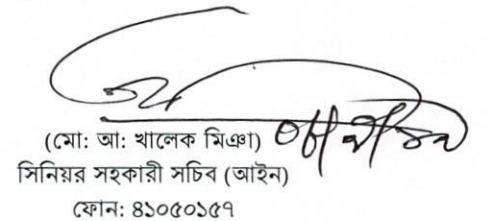 (মো: আ: খালেক মিঞা)
সিনিয়র সহকারী সচিব (আইন)
ফোন: ৪১০৫০১৫৭